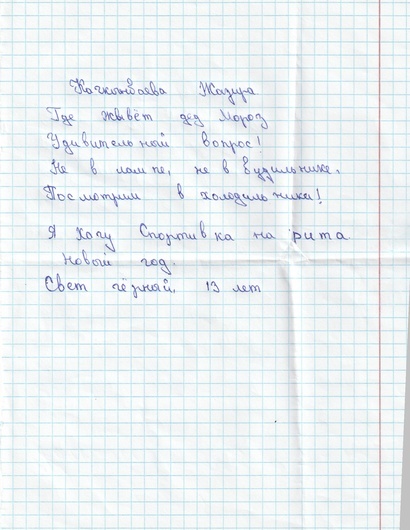 Качкынбаева Жазира
Где жывёт дед Мороз
Удивительный вопрос!
Не в лампе, не в будильнике,
Посмотрим в холодильнике!
Я хачу Спортивка на рита
Новый год.
Свет чёрный, 13 лет